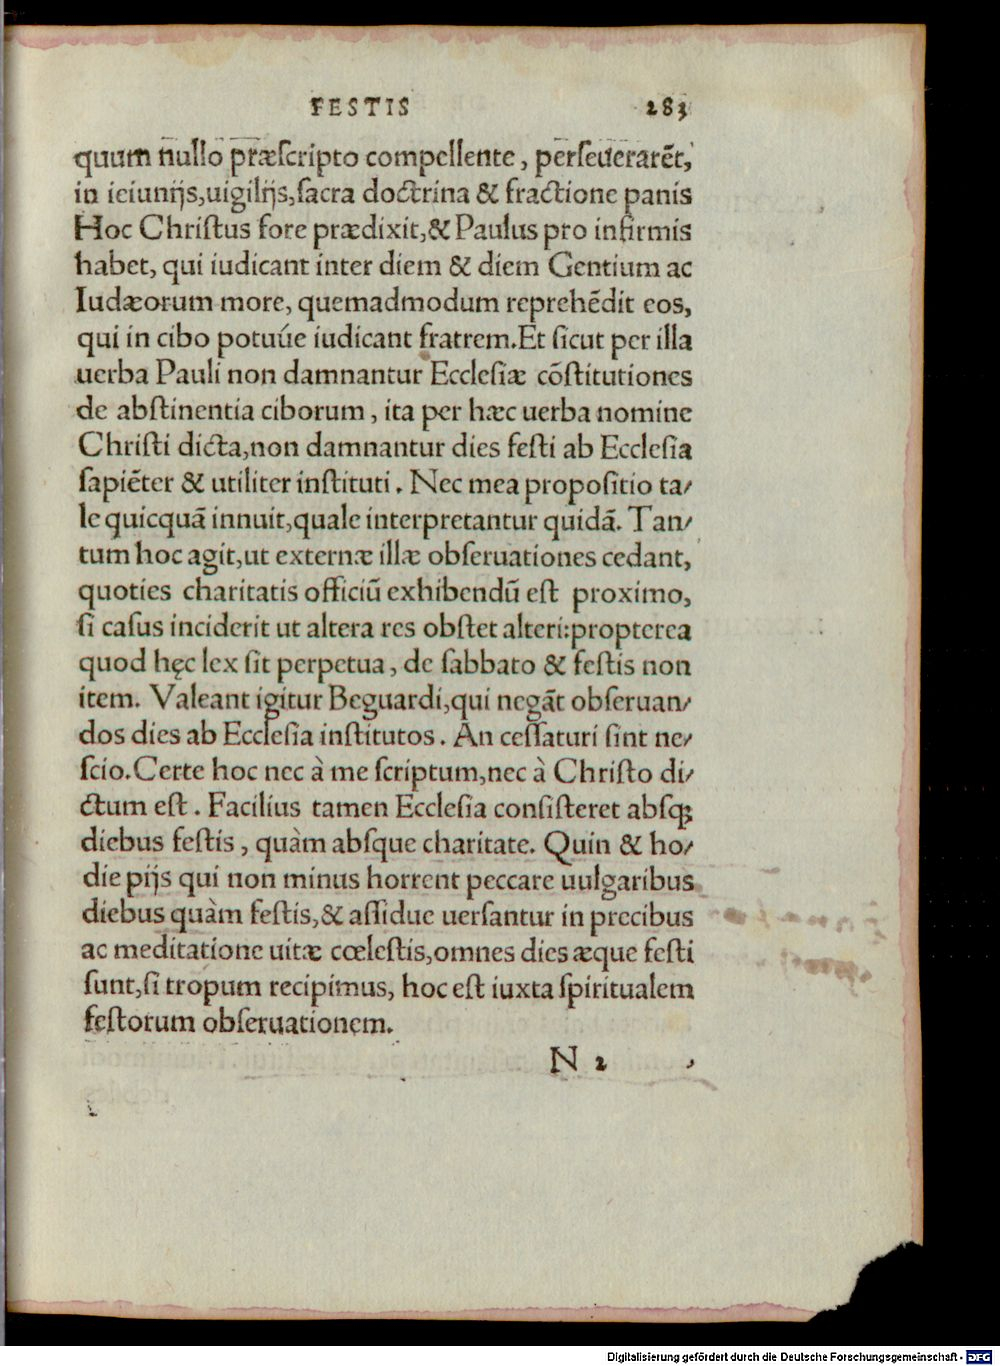 FESTIS 283
quum nullo præſcripto compellente, perſeuerarēt,
in ieiunijs,uigilijs,ſacra doctrina & fractione panis
Hoc Chriſtus fore prædixit,& Paulus pro infirmis
habet, qui iudicant inter diem & diem Gentium ac
Iudæorum more, quemadmodum reprehēdit eos,
qui in cibo potuúe iudicant fratrem.Et ſicut per illa
uerba Pauli non damnantur Eccleſiæ cōſtitutiones
de abſtinentia ciborum, ita per hæc uerba nomine
Chriſti dicta,non damnantur dies feſti ab Eccleſia
ſapiēter & utiliter inſtituti. Nec mea propoſitio ta/
le quicquā innuit,quale interpretantur quidā. Tan/
tum hoc agit,ut externæ illæ obſeruationes cedant,
quoties charitatis officiū exhibendū eſt proximo,
ſi caſus inciderit ut altera res obſtet alteri:propterea
quod hęc lex ſit perpetua, de ſabbato & feſtis non
item. Valeant igitur Beguardi,qui negāt obſeruan/
dos dies ab Eccleſia inſtitutos. An ceſſaturi ſint ne/
ſcio.Certe hoc nec à me ſcriptum,nec à Chriſto di/
ctum eſt. Facilius tamen Eccleſia conſiſteret abſqꝫ
diebus feſtis, quàm abſque charitate. Quin & ho/
die pijs qui non minus horrent peccare uulgaribus
diebus quàm feſtis,& aſſidue uerſantur in precibus
ac meditatione uitæ cœleſtis,omnes dies æque feſti
ſunt,ſi tropum recipimus, hoc eſt iuxta ſpiritualem
feſtorum obſeruationem.
N 2
Digitalisierung gefördert durch die Deutsche Forschungsgemeinschaft - DFG